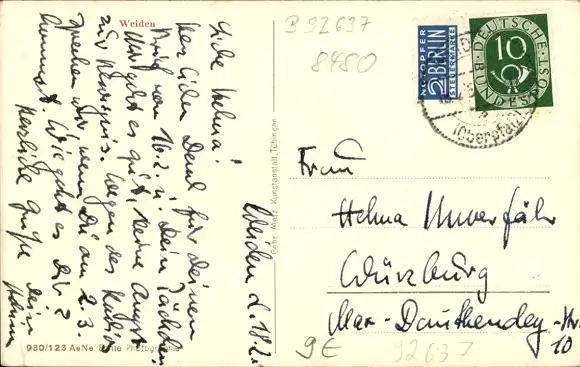 Weiden
B 92637
8480
NOTOPFER
2 BERLIN
STEUERMARKE
DEUTSCHE
10
BUNDESPOST
(Oberpfalz)
Weiden d. 18.2.
Liebe Helma!
Herzlichen Dank für Deinen
Brief vom 16.2. u. Dein Päckchen.
Mir geht es gut, keine Angst
zur Wegen des
sprechen wir, wenn Du am 2.3.
kommst. Wie geht es Dir?
Herzliche Grüße Dein
Gebr. Metz Kunstanstalt, Tübingen
Frau
Helma Unverfähr
Würzburg
Max-Dauthendey-Str.
10
980/123 AeNe Echte Photographie
9E 92637